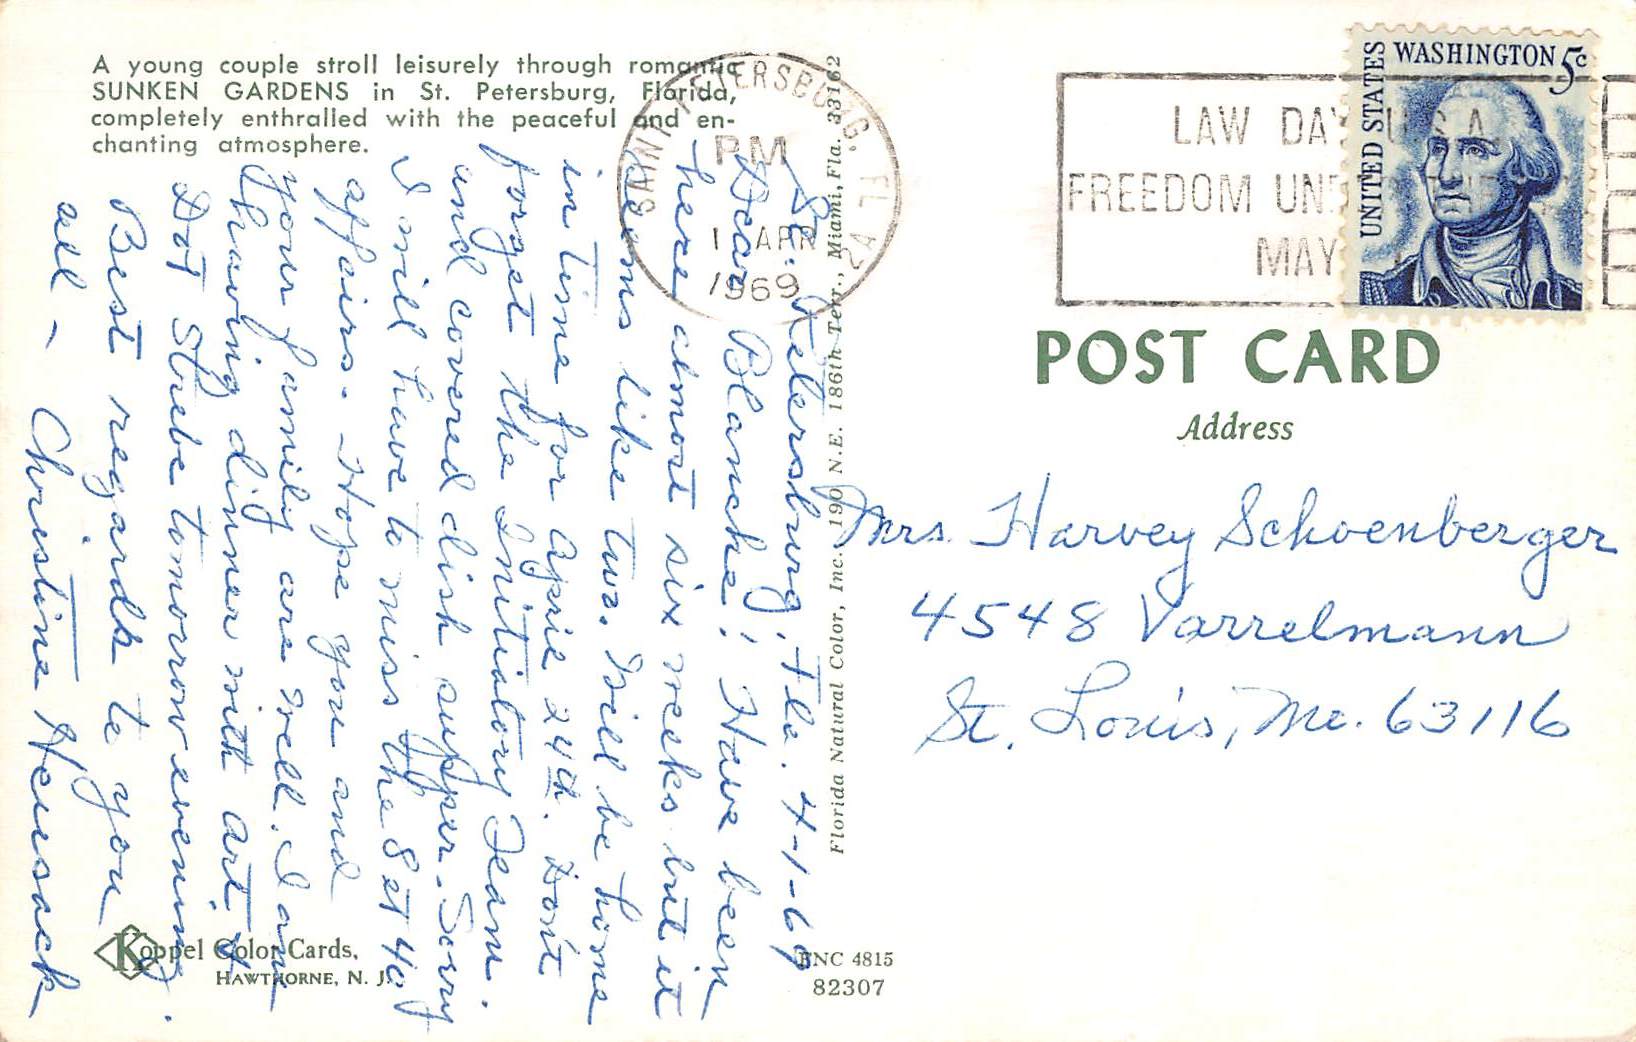 A young couple stroll leisurely through romantic
SUNKEN GARDENS in St. Petersburg, Florida,
completely enthralled with the peaceful and en-
chanting atmosphere.
SAINT PETERSBURG, FLA
PM
1 APR
1969
LAW DAY USA
FREEDOM
MAY
UNITED STATES
WASHINGTON 5c
POST CARD
Address
Mrs. Harvey Schoenberger
4548 Varrelmann
St. Louis, Mo. 63116
St. Petersburg, Fla. 4-1-69
Dear Blanche! Have been
here almost six weeks but it
seems like two. Will be home
in time for April 24th. Dont
forget the Initiatory Team.
and covered dish supper. Sorry
I will have to miss the 8 et 40
affairs. Hope you and
your family are well. I am
having dinner with Art &
Dot Strebe tomorrow evening.
Best regards to you
all - Christine Heusack
Florida Natural Color, Inc., 190 N.E. 186th Terr., Miami, Fla. 33162
Koppel Color Cards,
HAWTHORNE, N. J.
FNC 4815
82307